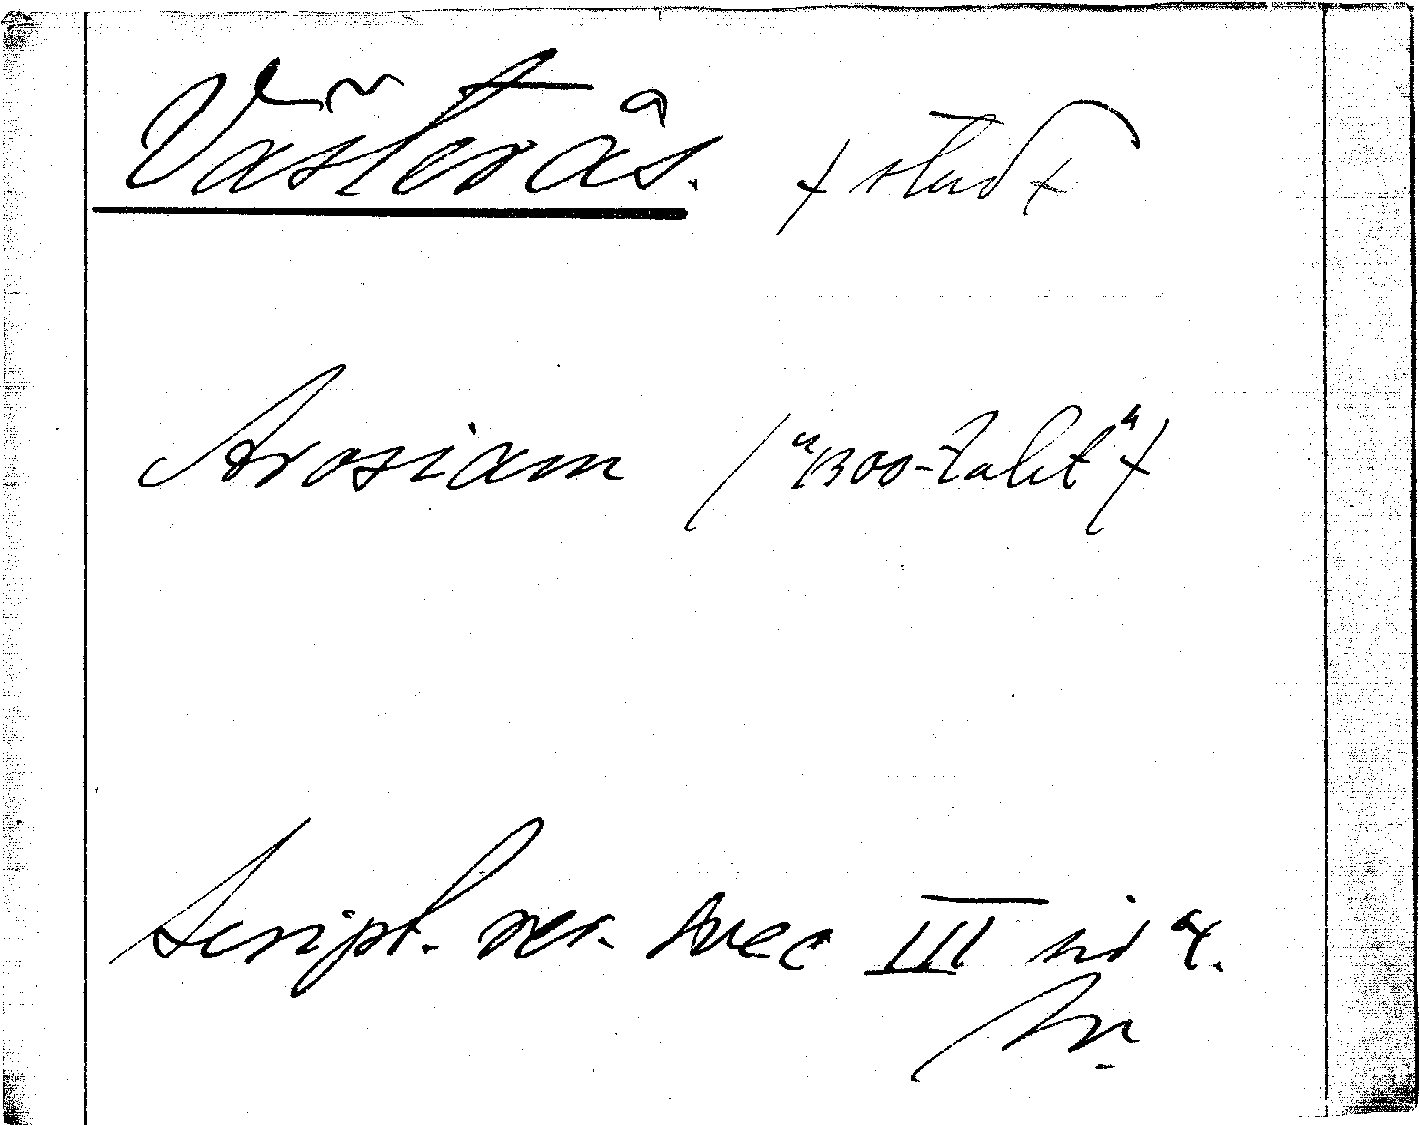 Västerås. (stad)
Arosiam ("1300-talet")
Script. rer. svec III sid 4.